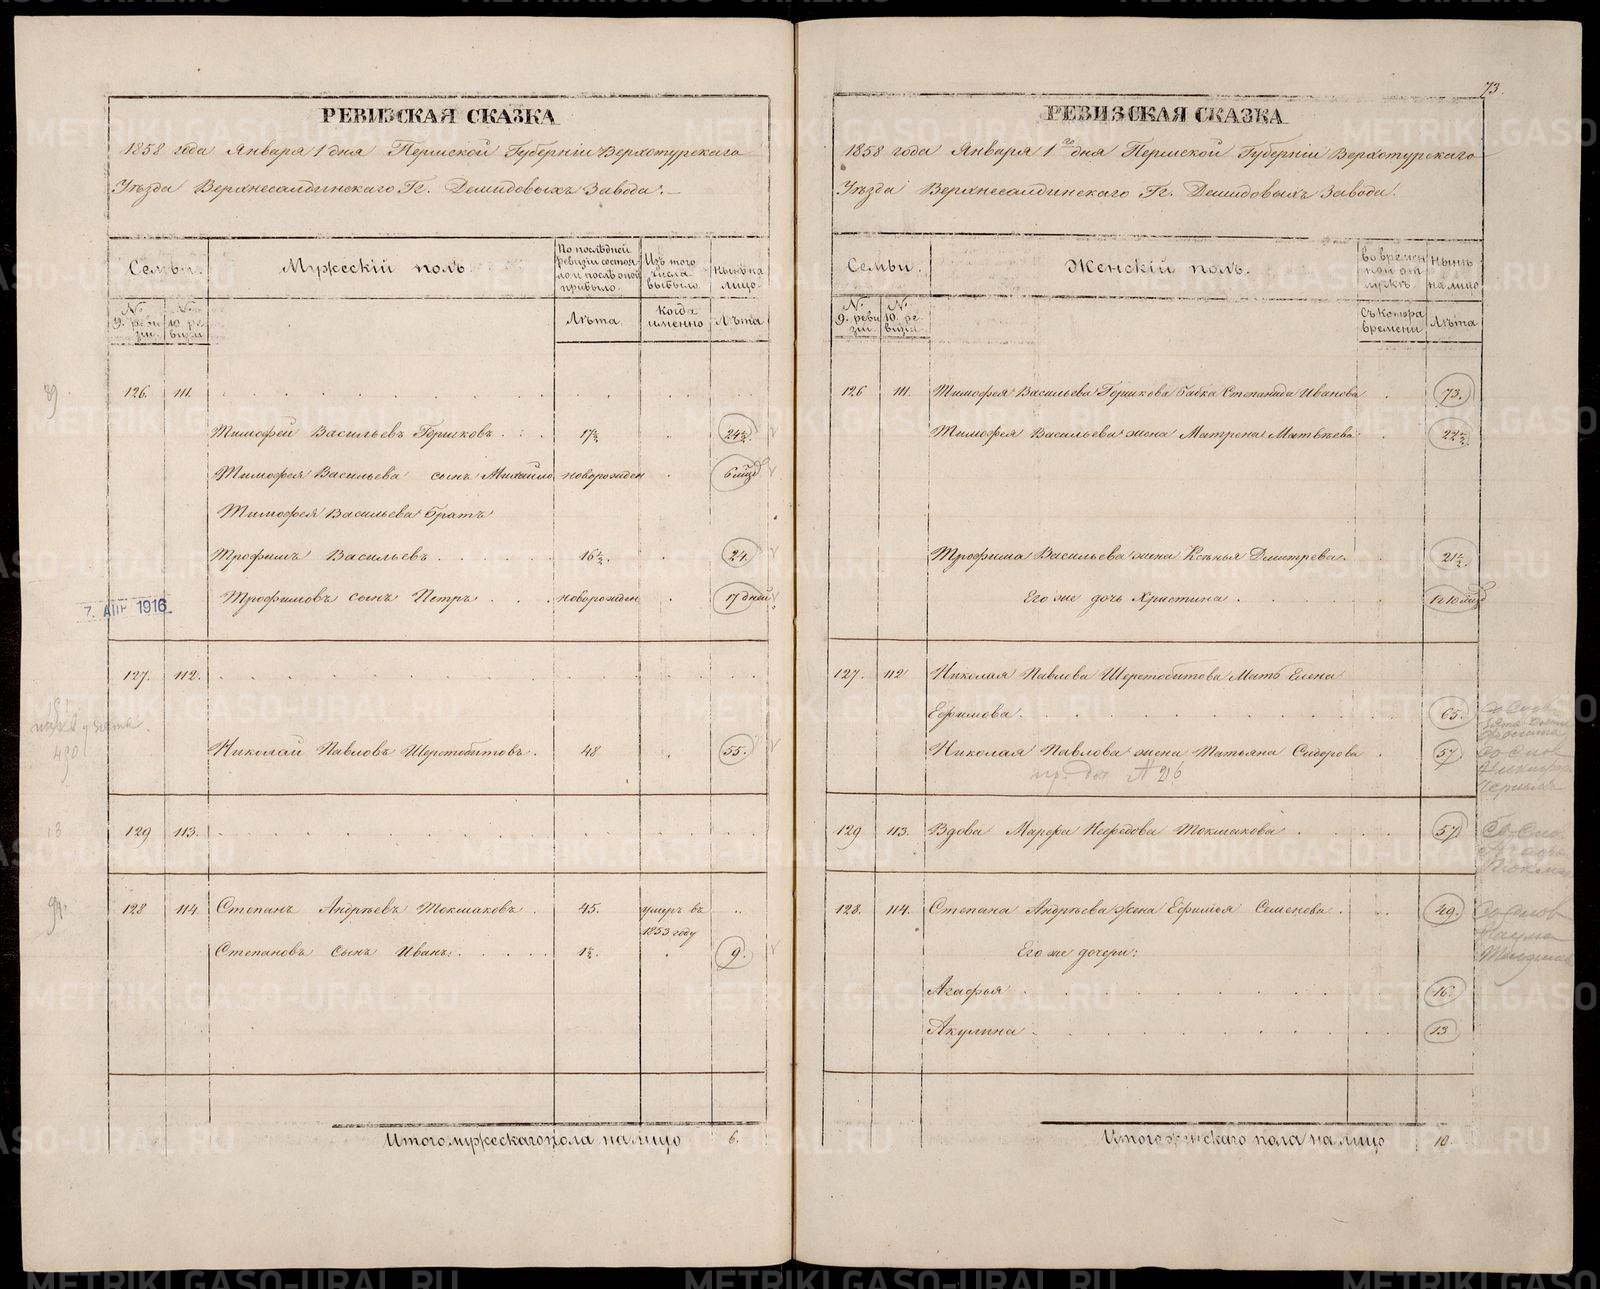 РЕВИЗСКАЯ СКАЗКА
1858 года Января 1 дня Пермской Губерніи Верхотурскаго
Уѣзда Верхнесалдинскаго Гг. Демидовыхъ Завода.
Семьи. Мужескій полъ. По послѣдней ревизіи состояло и послѣ оной прибыло. Изъ того числа выбыло. Нынѣ на лицо.
№ 9. ревизіи. № 10. ревизіи Лѣта. Когда именно Лѣта
126. 111.
Тимофей Васильевъ Горшковъ. 17½ 24½.
Тимофея Васильева сынъ Михайло новорожден 6 мѣс.
Тимофея Васильева братъ
Трофимъ Васильевъ 16½. 24.
Трофимовъ сынъ Петръ новорожден 17 дней
7. АПР 1916
127. 112.
Николай Павловъ Шерстобитовъ. 48 55.
129 113.
128 114. Степанъ Андрѣевъ Токмаковъ. 45. умеръ въ
1853 году
Степановъ сынъ Иванъ. 1½. 9.
Итого мужескаго пола на лицо 6.
73.
РЕВИЗСКАЯ СКАЗКА
1858 года Января 1го дня Пермской Губерніи Верхотурскаго
Уѣзда Верхнесалдинскаго Гг. Демидовыхъ Завода.
Семьи. Женскій полъ. Во временной отлучкѣ. Нынѣ на лицо
№ 9. ревизіи. № 10. ревизіи. Съ котора времени Лѣта
126 111. Тимофея Васильева Горшкова бабка Степанида Иванова 73.
Тимофея Васильева жена Матрена Матвѣева 22½
Трофима Васильева жена Ксенья Дмитрева. 21½.
Его же дочь Христина
127. 112 Николая Павлова Шерстобитова Мать Елена
Ефимова. 65.
Николая Павлова жена Татьяна Сидорова 57
129 113. Вдова Марфа Нефедова Токмакова 57.
128. 114. Степана Андрѣева жена Ефимья Семенова. 49.
Его же дочери:
Агафья 16.
Акулина 13
Итого женскаго пола на лицо 10.
METRIKI.GASO-URAL.RU